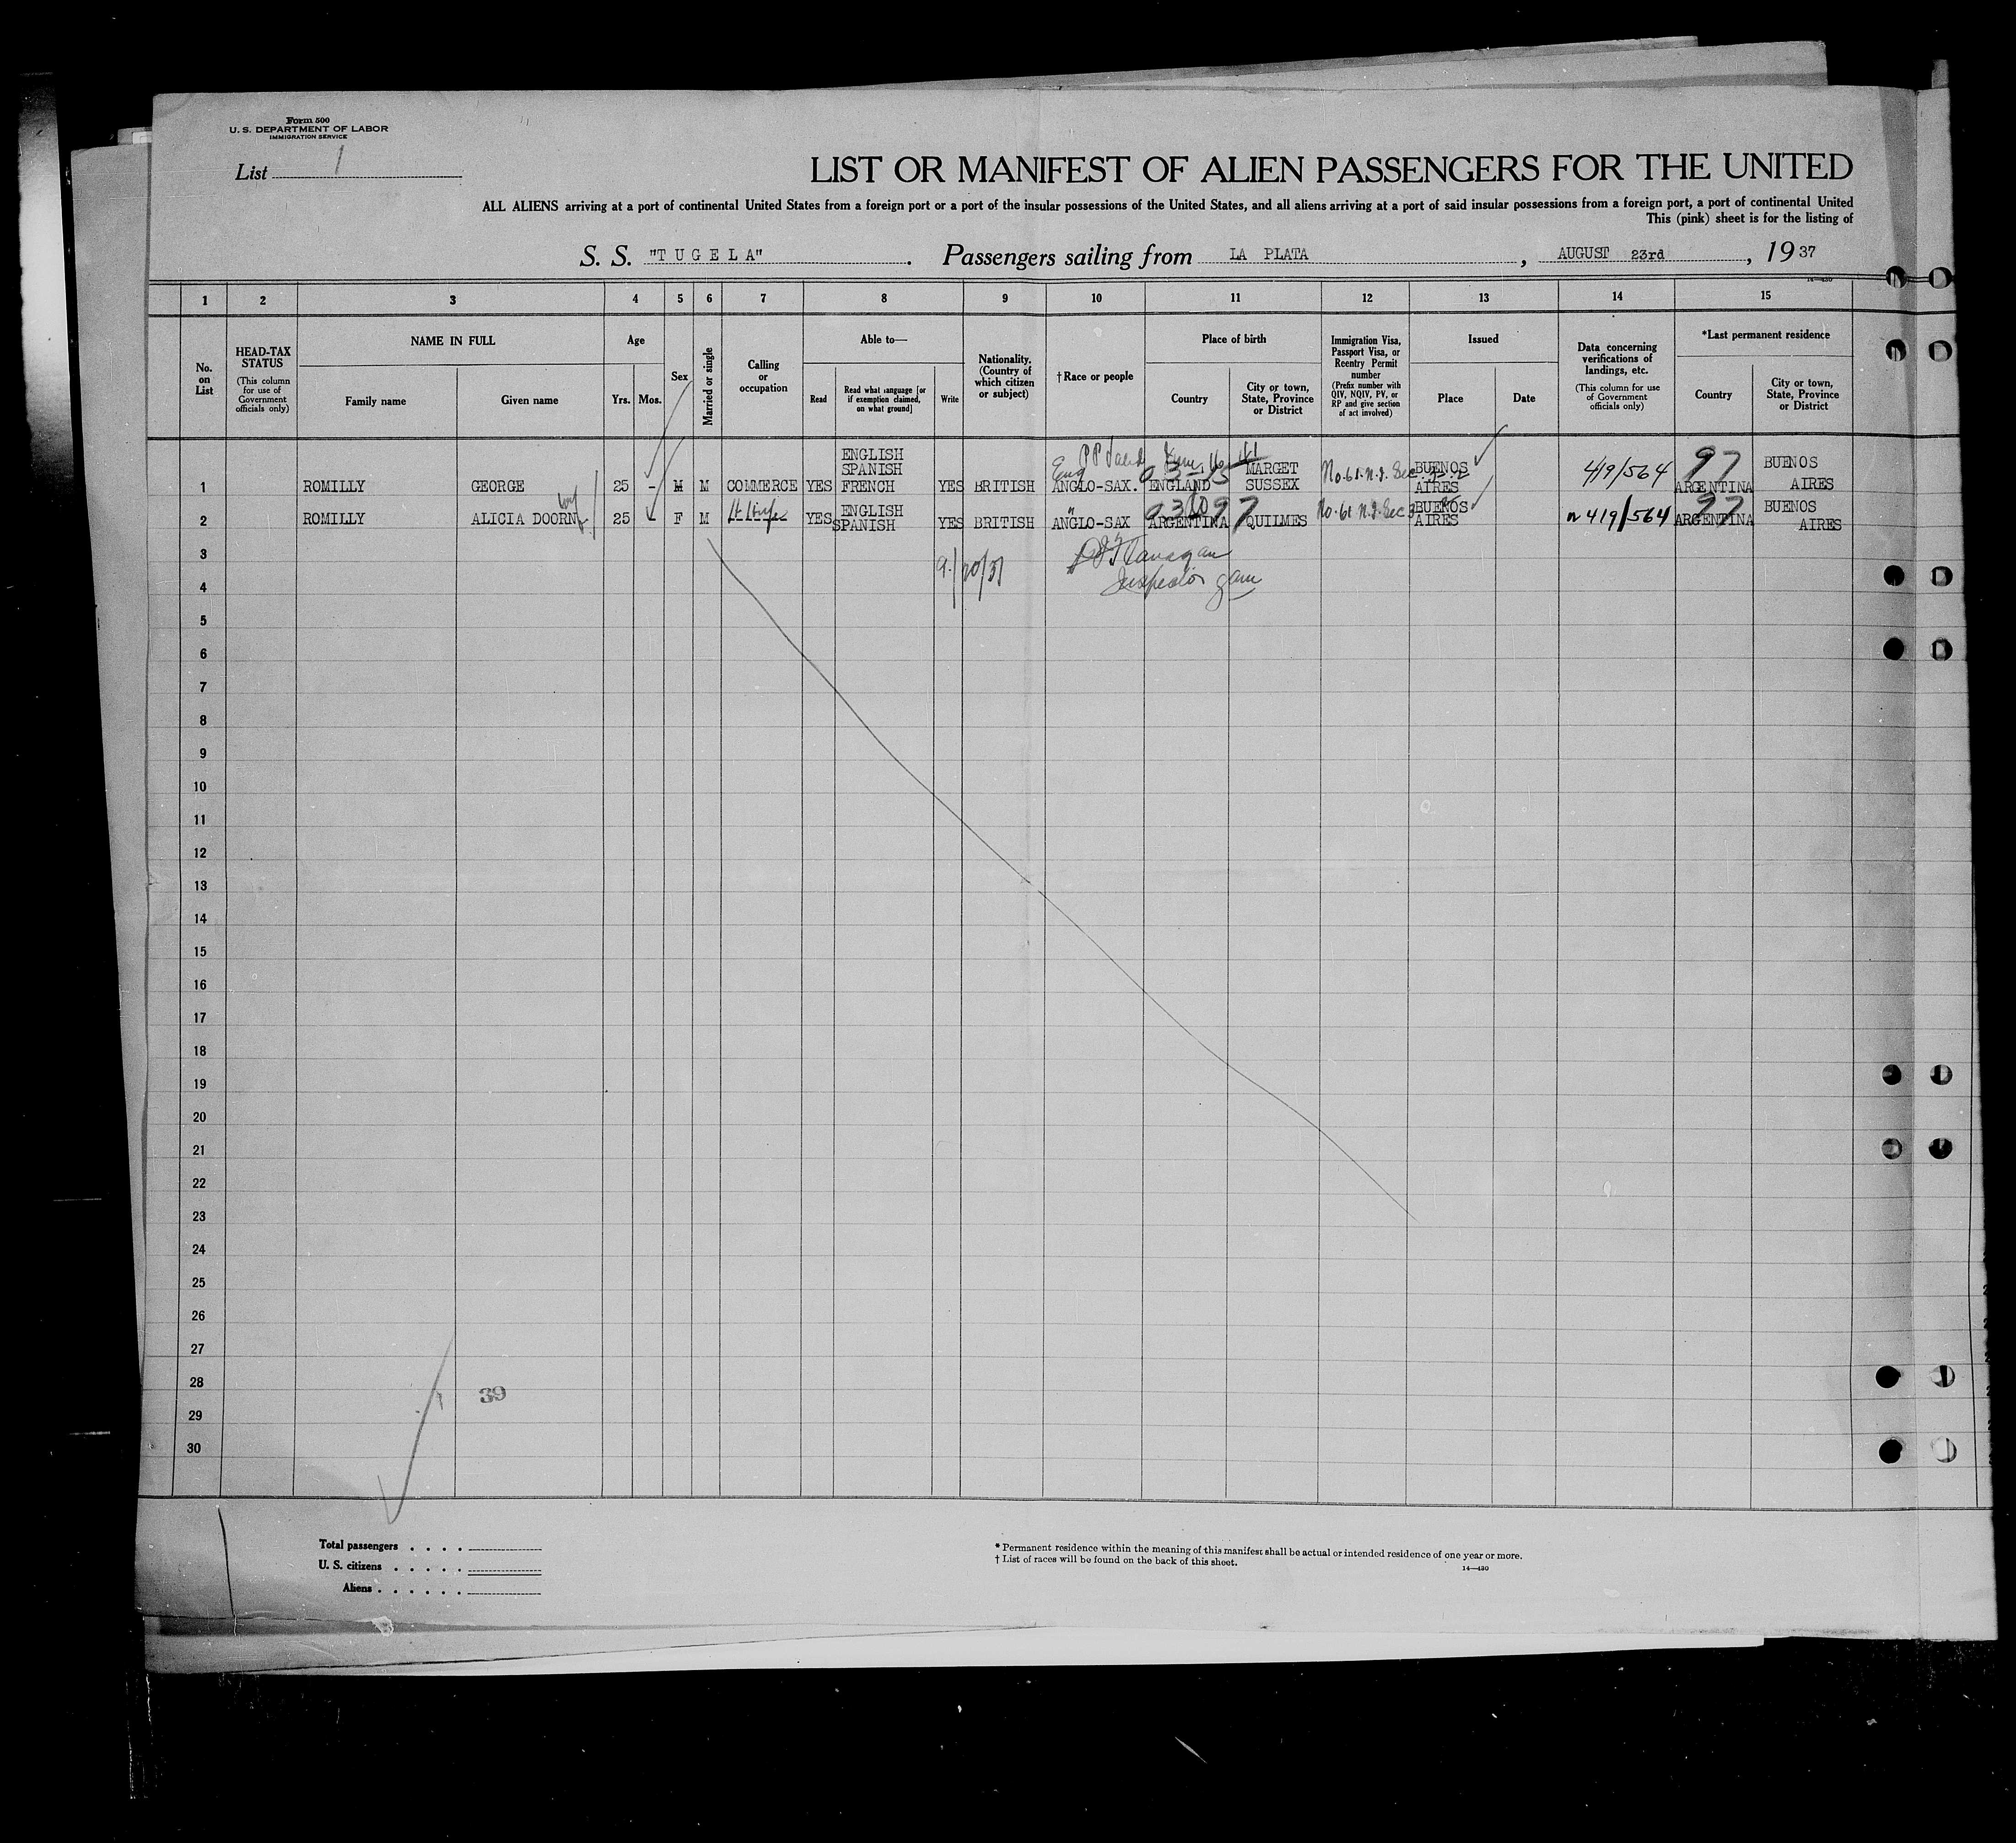 Form 500
U. S. DEPARTMENT OF LABOR
IMMIGRATION SERVICE
List 1
LIST OR MANIFEST OF ALIEN PASSENGERS FOR THE UNITED
ALL ALIENS arriving at a port of continental United States from a foreign port or a port of the insular possessions of the United States, and all aliens arriving at a port of said insular possessions from a foreign port, a port of continental United
This (pink) sheet is for the listing of
S. S. "TUGELA". Passengers sailing from LA PLATA, AUGUST 23rd, 1937
14—430
1 2 3 4 5 6 7 8 9 10 11 12 13 14 15
No. on List
HEAD-TAX STATUS
(This column for use of Government officials only)
NAME IN FULL
Family name
Given name
Age
Yrs.
Mos.
Sex
Married or single
Calling or occupation
Able to—
Read
Read what language [or if exemption claimed, on what ground]
Write
Nationality. (Country of which citizen or subject)
† Race or people
Place of birth
Country
City or town, State, Province or District
Immigration Visa, Passport Visa, or Reentry Permit number
(Prefix number with QIV, NQIV, PV, or RP and give section of act involved)
Issued
Place
Date
Data concerning verifications of landings, etc.
(This column for use of Government officials only)
*Last permanent residence
Country
City or town, State, Province or District
1 ROMILLY GEORGE 25 - M M COMMERCE YES ENGLISH SPANISH FRENCH YES BRITISH Eng ANGLO-SAX. ENGLAND MARGET SUSSEX BUENOS AIRES 419/564 97 ARGENTINA BUENOS AIRES
2 ROMILLY ALICIA DOORN 25 F M YES ENGLISH SPANISH YES BRITISH " ANGLO-SAX ARGENTINA QUILMES BUENOS AIRES 419/564 97 ARGENTINA BUENOS AIRES
3
4 9/20/37 Inspector
5
6
7
8
9
10
11
12
13
14
15
16
17
18
19
20
21
22
23
24
25
26
27
28 39
29
30
Total passengers . . . .
U. S. citizens . . . . .
Aliens . . . . . .
* Permanent residence within the meaning of this manifest shall be actual or intended residence of one year or more.
† List of races will be found on the back of this sheet.
14—430